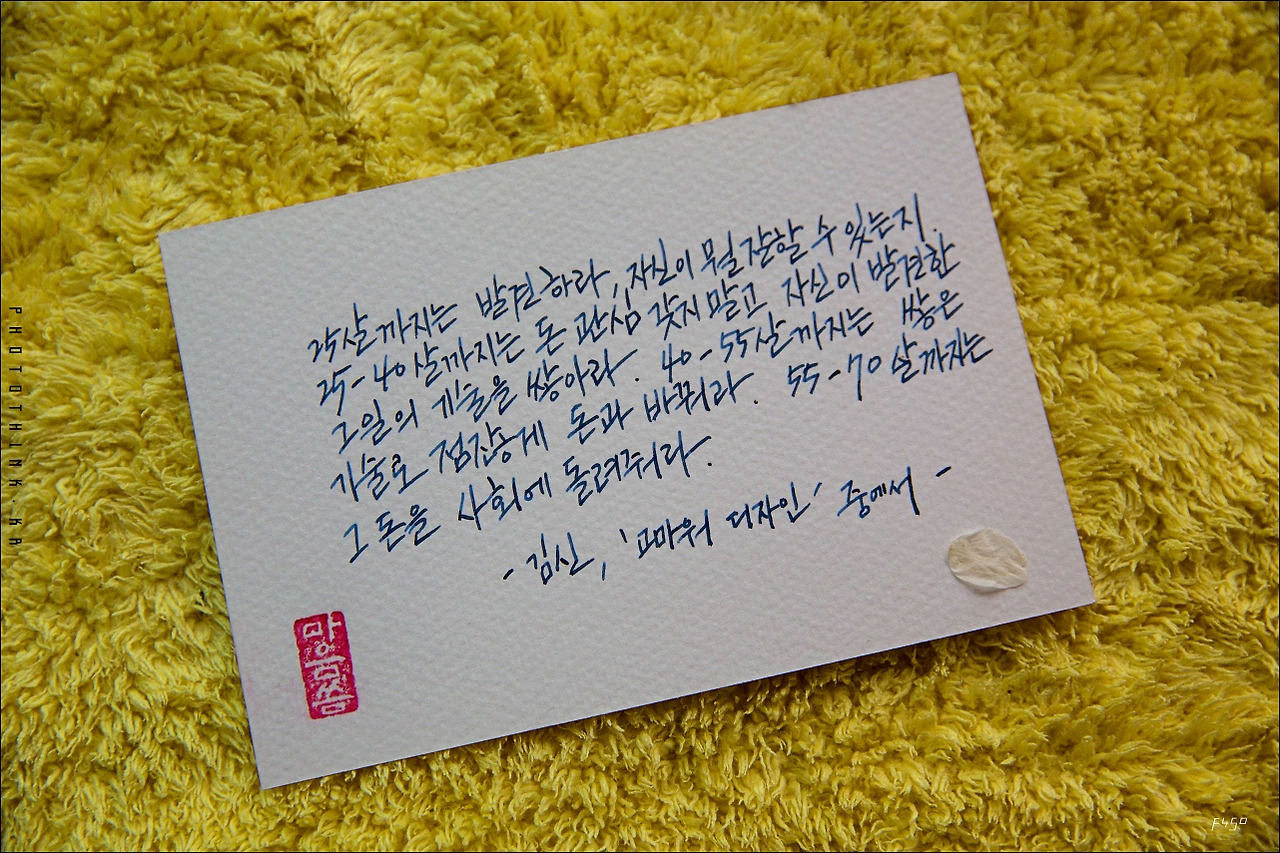 25살까지는 발견하라, 자신이 뭘 잘할 수 있는지.
25-40살까지는 돈 관심 갖지말고 자신이 발견한
그일의 기술을 쌓아라. 40-55살까지는 쌓은
기술로 점잖게 돈과 바꿔라. 55-70살까지는
그 돈을 사회에 돌려줘라.
- 김신, '고마워 디자인' 중에서 -
PHOTOTHINK.KR
F450